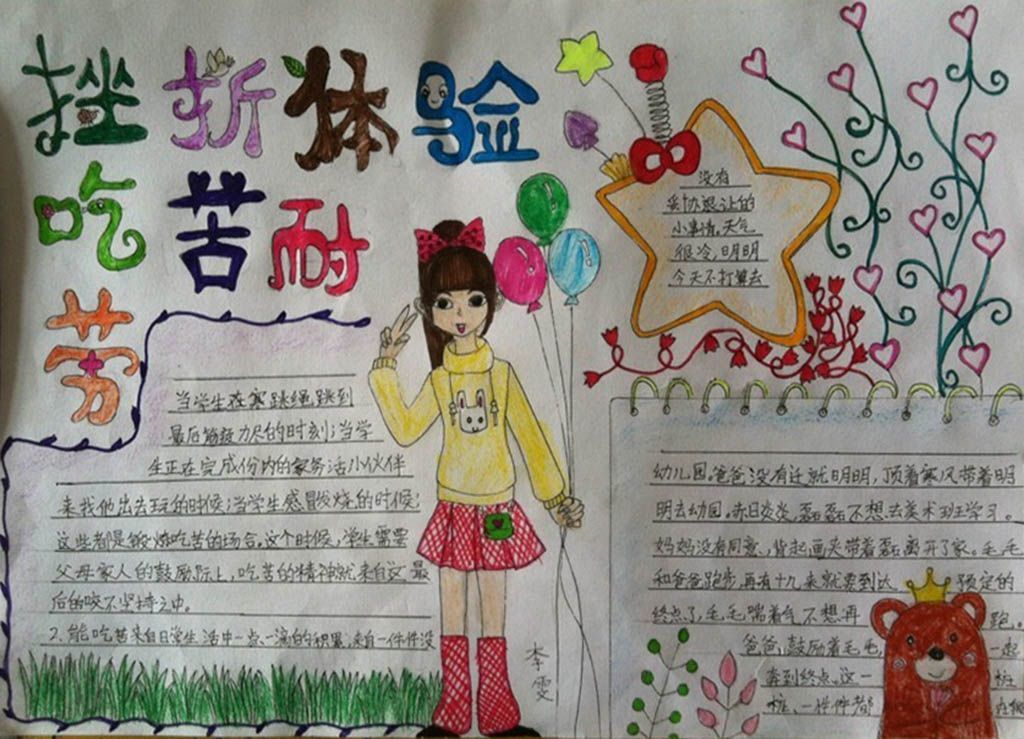 挫折体验
吃苦耐
劳
当学生在寒跳绳跳到
最后筋疲力尽的时刻；当学
生正在完成份内的家务活小伙伴
来找他出去玩的时候；当学生感冒发烧的时候；
这些都是锻炼吃苦的场合。这个时候，学生需要
父母家人的鼓励际上，吃苦的精神就来自这最
后的咬不坚持之中。
2、能吃苦来自日学生活中一点一滴的积累，来自一件件没
没有
妥协退让的
小事情。天气
很冷，明明
今天不打算去
幼儿园。爸爸没有迁就明明，顶着寒风带着明
明去幼园。赤日炎炎，磊磊不想去美术班学习。
妈妈没有同意，背起画夹带着磊离开了家。毛毛
和爸爸跑步，再有十九来就要到达预定的
终点了，毛毛喘着气不想再跑。
爸爸鼓励着毛毛，一起
奔到终点。这一桩
桩、一件件都
李雯